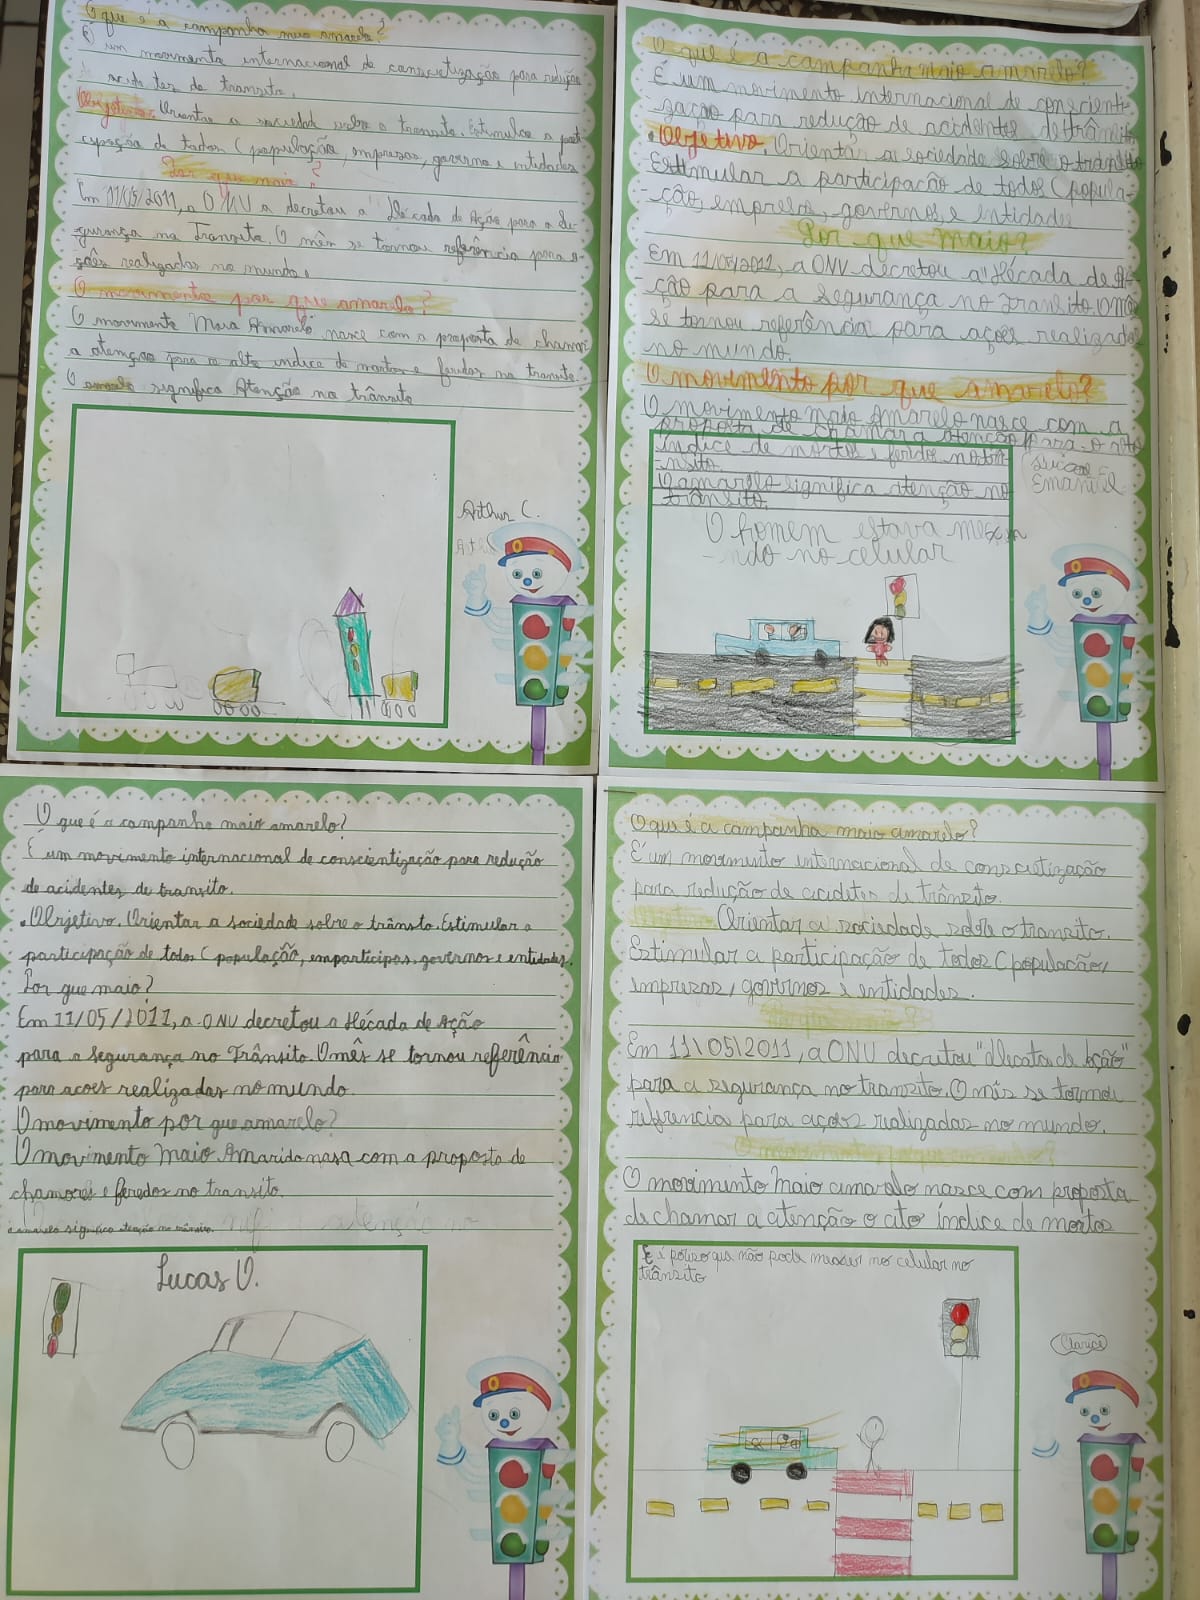 O que é a campanha maio amarelo?
É um movimento internacional de conscietização para redução
de acidetes de transito.
Objetivo: Orientar a sociedade sobre o transito. Estimular a part
cypação de todos (população, empresas, governo e entidades
Por que maio?
Em 11/05/2011, a ONU a decretou a "Década de Ação para a Se-
gurança no Transito. O mên se tornou referência para a
ções realizadas no mundo.
O movimento por que amarelo?
O movimento Maio Amarelo, nasce com a proposta de chamar
a atenção para o alto indice de mortos e feridos no transito.
O amarelo significa Atenção no trânsito
Arthur C.
O que é a campanha maio amarelo?
É um movimento internacional de conscienti-
zação para redução de acidentes de trânsito
• Objetivo. Orientar a sociedade sobre o trânsito
Estimular a participação de todos (popula-
-ção, empresas, governos, e entidade
Por que maio?
Em 11/05/2011, a ONU decretou a "Década de A-
-ção para a segurança no transito. O mês
se tornou referência para ações realizadas
no mundo.
O movimento por que amarelo?
O movimento maio Amarelo nasce com a
proposta de chamar a atenção para o alto
índice de mortos e feridos no trâ-
-nsito.
O amarelo significa atenção no
trânsito.
Emanuel
O homem estava mexen
-ndo no celular
O que é a campanha maio amarelo?
É um movimento internacional de conscientização para redução
de acidentes de transito.
• Objetivo. Orientar a sociedade sobre o trânsto. Estimular a
participação de todos (população, emparticipos, governos e entidades.
Por que maio?
Em 11/05/2011, a ONU decretou a Década de Ação
para a segurança no Trânsito. O mês se tornou referência
para acoes realizadas no mundo.
O movimento por que amarelo?
O movimento Maio Amarido nasa com a proposta de
chamores e feredos no transito.
o amarelo significa atenção no trânsito. atenção no
Lucas V.
O qui é a campanha maio amarelo?
É um movimento internacional de conscutização
para redução de aciditos de trânsito.
Objetivo Orientar a sociedade sobre o transito.
Estimular a participação de todos (população,
imprezas, governos e entidades.
Por que maio?
Em 11/05/2011, a ONU decrutou "decata de Ação"
para a zigurança no tranzito. O mês se tornou
rifirancia para ações rializadas no mundo.
O movimento
O movimento Maio amarelo nasce com proposta
de chamar a atenção o ato índice de mortos
E é porisso qui não pode mexer no celular no
trânsito
Clarice